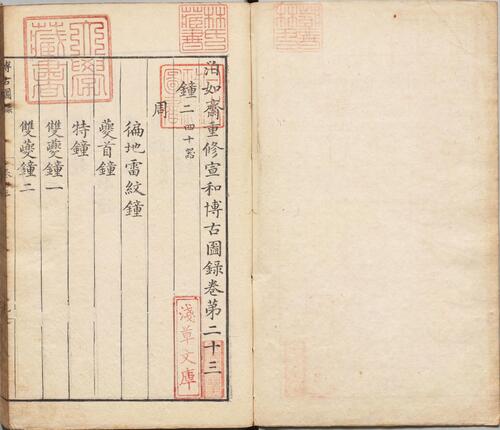 泊如齋重修宣和博古圖錄卷第二十三
鐘二 四十器
周
徧地雷紋鐘
夔首鐘
特鐘
雙夔鐘一
雙夔鐘二
博古圖錄
淺草文庫
林氏藏書